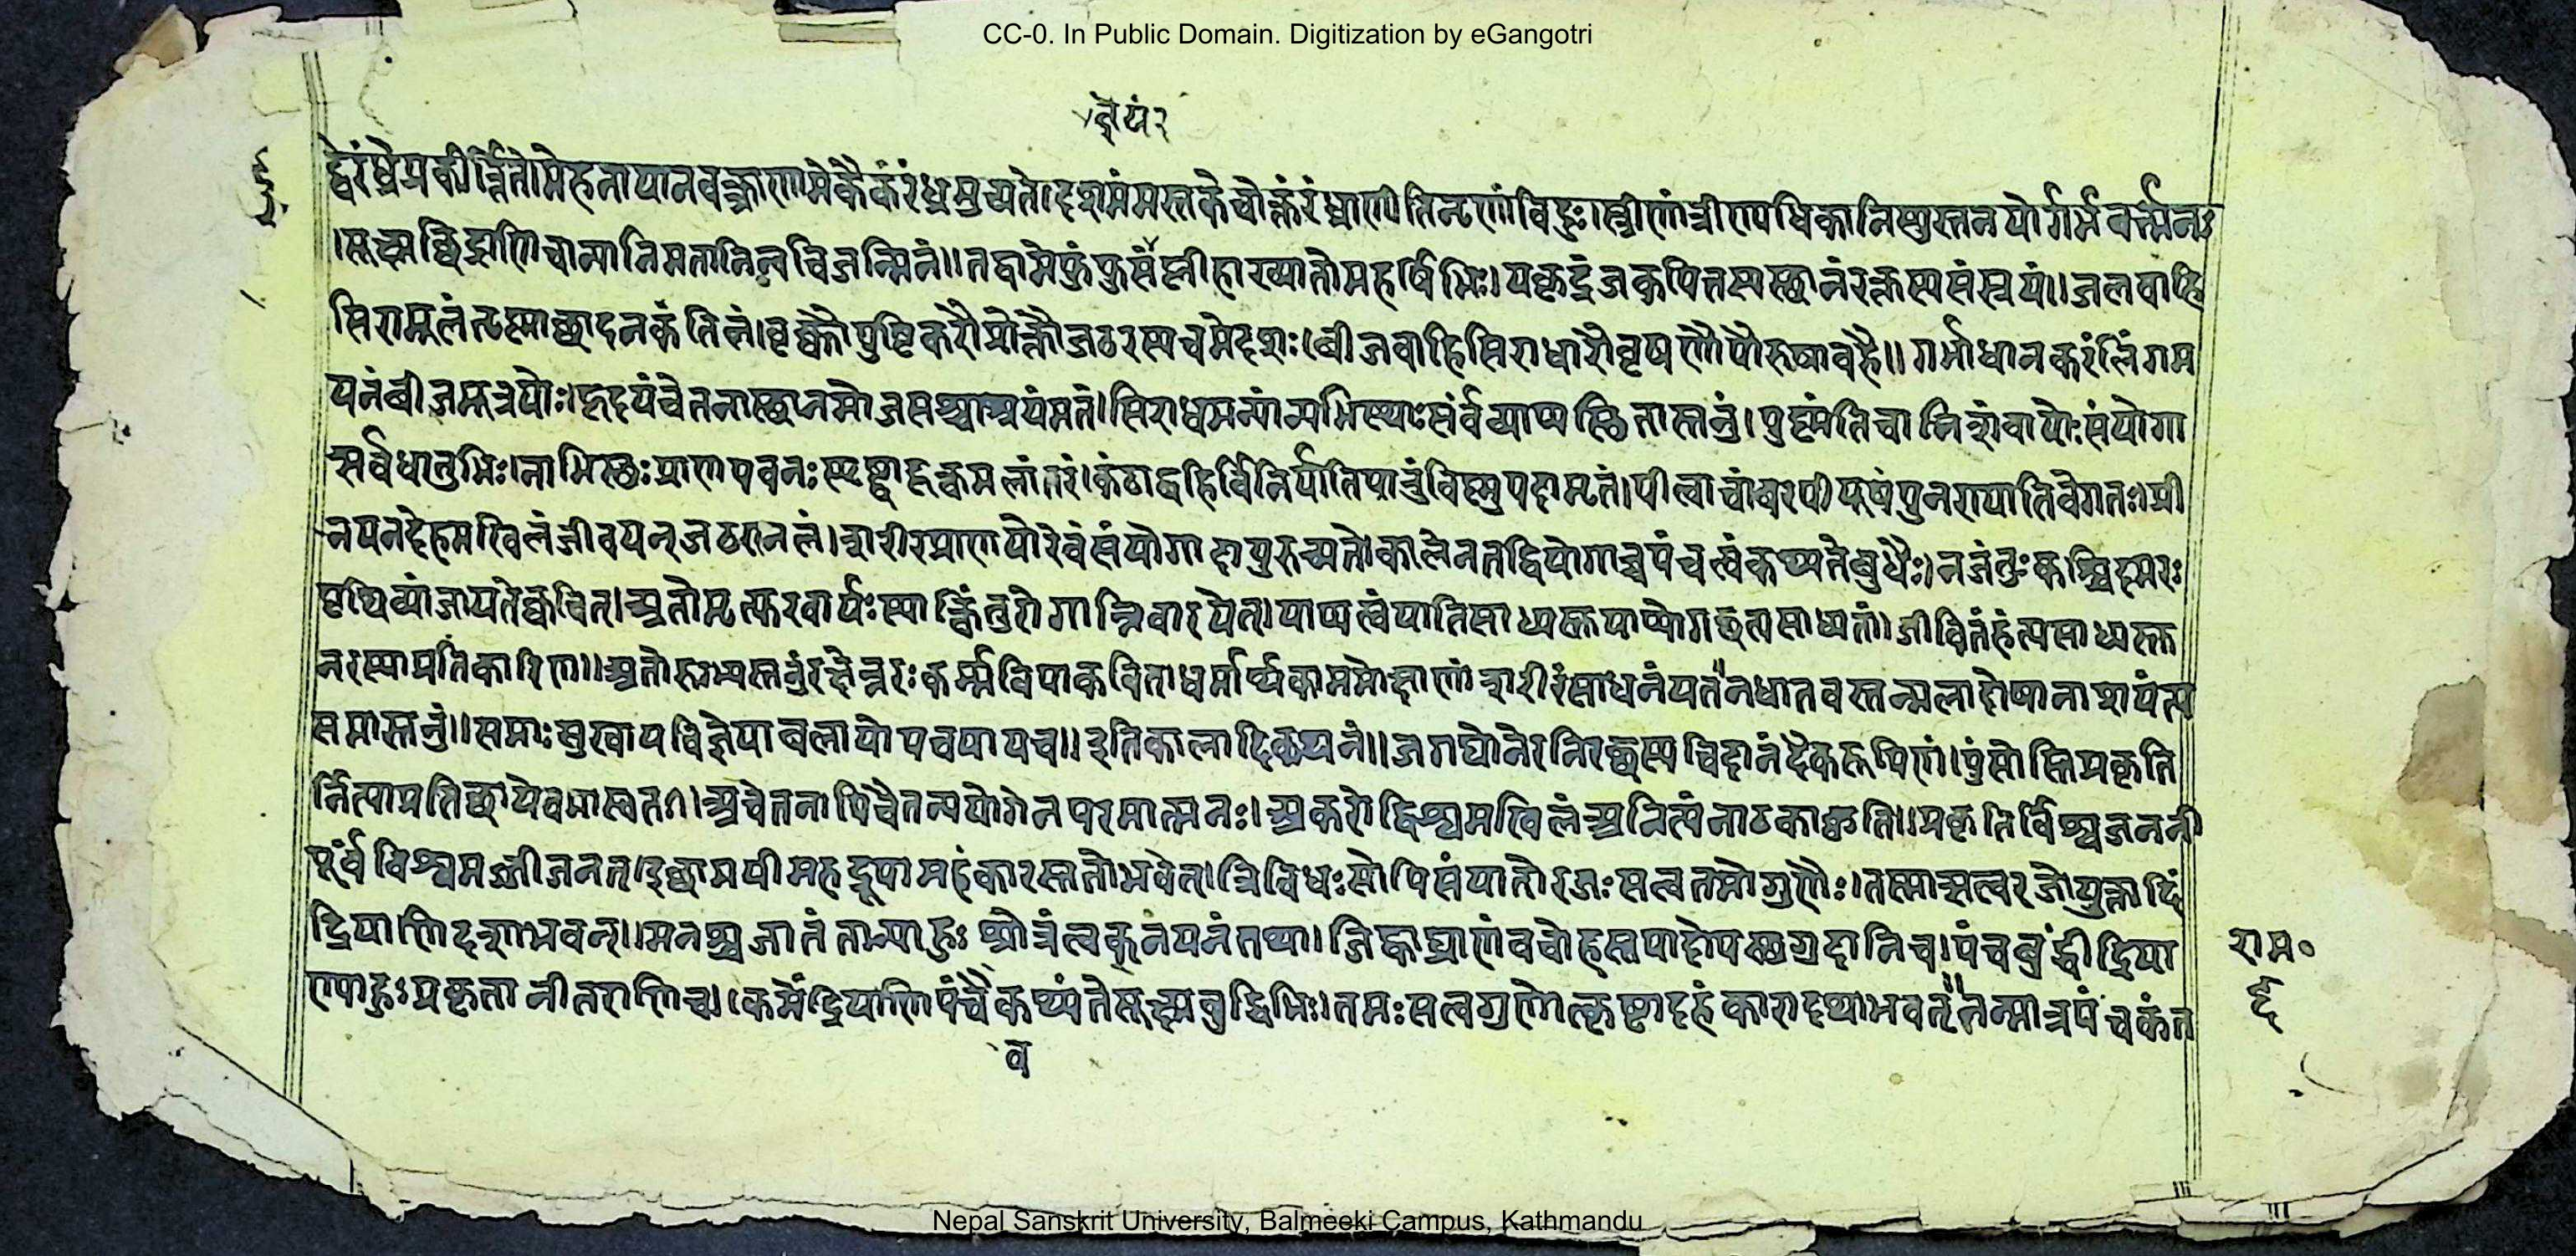 CC-0. In Public Domain. Digitization by eGangotri
ज्ञेयं२
द्वेरंध्रेप्रकीर्त्तिते।मेहनापानवक्त्राणामेकैकंरंध्रमुच्यते।दशमंमस्तकेचोक्तंरंध्राणीतिनृणांविदुः।स्त्रीणांत्रीण्यधिकानिस्युस्तनयोर्गर्भवर्त्मनः
।सूक्ष्मछिद्राणिचान्यानिमतानित्वचिजन्मिनं॥तद्वामेफुंफुसंप्लीहाख्यातोमहर्षिभिः।यकृद्रंजकपित्तस्यस्थानंरक्तस्यसंस्रयं॥जलवाहि
सिरामूलंतृष्माछादनकंतिलं।वृक्कौपुष्टिकरौप्रोक्तौजठरस्यचमेदशः।बीजवाहिसिराधारौवृषणौपौरुषावहै॥गर्भाधानकरंलिंगम
यनंबीजमूत्रयोः।हृदयंचेतनास्थानमोजसश्चाश्रयंमतं।सिराधमन्यांन्यभिस्याःसंर्वव्याप्यस्थितास्तनुं।पुष्मंतिचानिशंवायोःसंयोगा
सर्वधातुभिः।नाभिस्थःप्राणपवनःस्पृष्ट्वाहृत्कमलांतरं।कंठाद्वहिर्विनिर्यातिपातुंविष्मुपदामृतं।पीत्वाचांवरपीयूषंपुनरायातिवेगतः।प्री
नयनदेहमखिलंजीवयन्जठरानलं।शरीरप्राणयोरेवंसंयोगादायुरुच्यते।कालेनतद्वियोगाच्चपंचत्वंकथ्यतेबुधैः।नजंतुःकश्चिदमरः
पृथिव्यांजायतेक्वचित्।अतोमृत्फरवार्यःस्याकिंतुरोगान्निवारयेत्।याप्यत्वंयातिसाध्यस्तयाप्योगछत्यसाध्यतां।जीवितंहंत्यसाध्यस्त
नरस्याप्रतिकारिण॥अतोरुग्भ्यस्तनुंरक्षेन्नरःकर्म्मविपाकविताधर्मार्थकाममोक्षाणांशरीरंसाधनंयतःनधातवस्तन्मलादोषानाशयंत्य
समास्तनुं॥समाःसुखायविज्ञेयाबलायोपचयायच॥इतिकालादिकथनं॥जगद्योनेरनिरछस्यचिदानंदैकरूपिणं।पुंसोस्तिप्रकृति
र्नित्याप्रतिछायेवभास्वतः।अचेतनापिचैतन्ययोगेनपरमात्मनः।अकरोद्विश्वमखिलंअनित्यंनाठकाकृति॥प्रकृतिर्विश्वजननी
पूंर्वविश्वमजीजनत्।इछामयीमहद्रूपामहंकारस्ततोभवेत्।त्रिविधःसोपिसंयातोरजःसत्वतमोगुणैः।तस्मात्सत्वरजोयुक्तादिं
द्रियाणिदशाभवन्॥मनश्चजातंतान्याहुःश्रोत्रंत्वक्नयनंतथा।जिह्वाघ्राणंवचोहस्तपादोपस्थगुदानिच।पंचबुद्धींद्रिया
ण्याहुःप्रकृतानीतराणिच।कर्मेंद्रियाणिपंचैकथ्यंतेसूक्ष्मबुद्धिभिः।तमःसत्वगुणोत्कृष्टादहंकारादथाभवत्तन्मात्रपंचकंत
व
राम०
६
Nepal Sanskrit University, Balmeeki Campus, Kathmandu